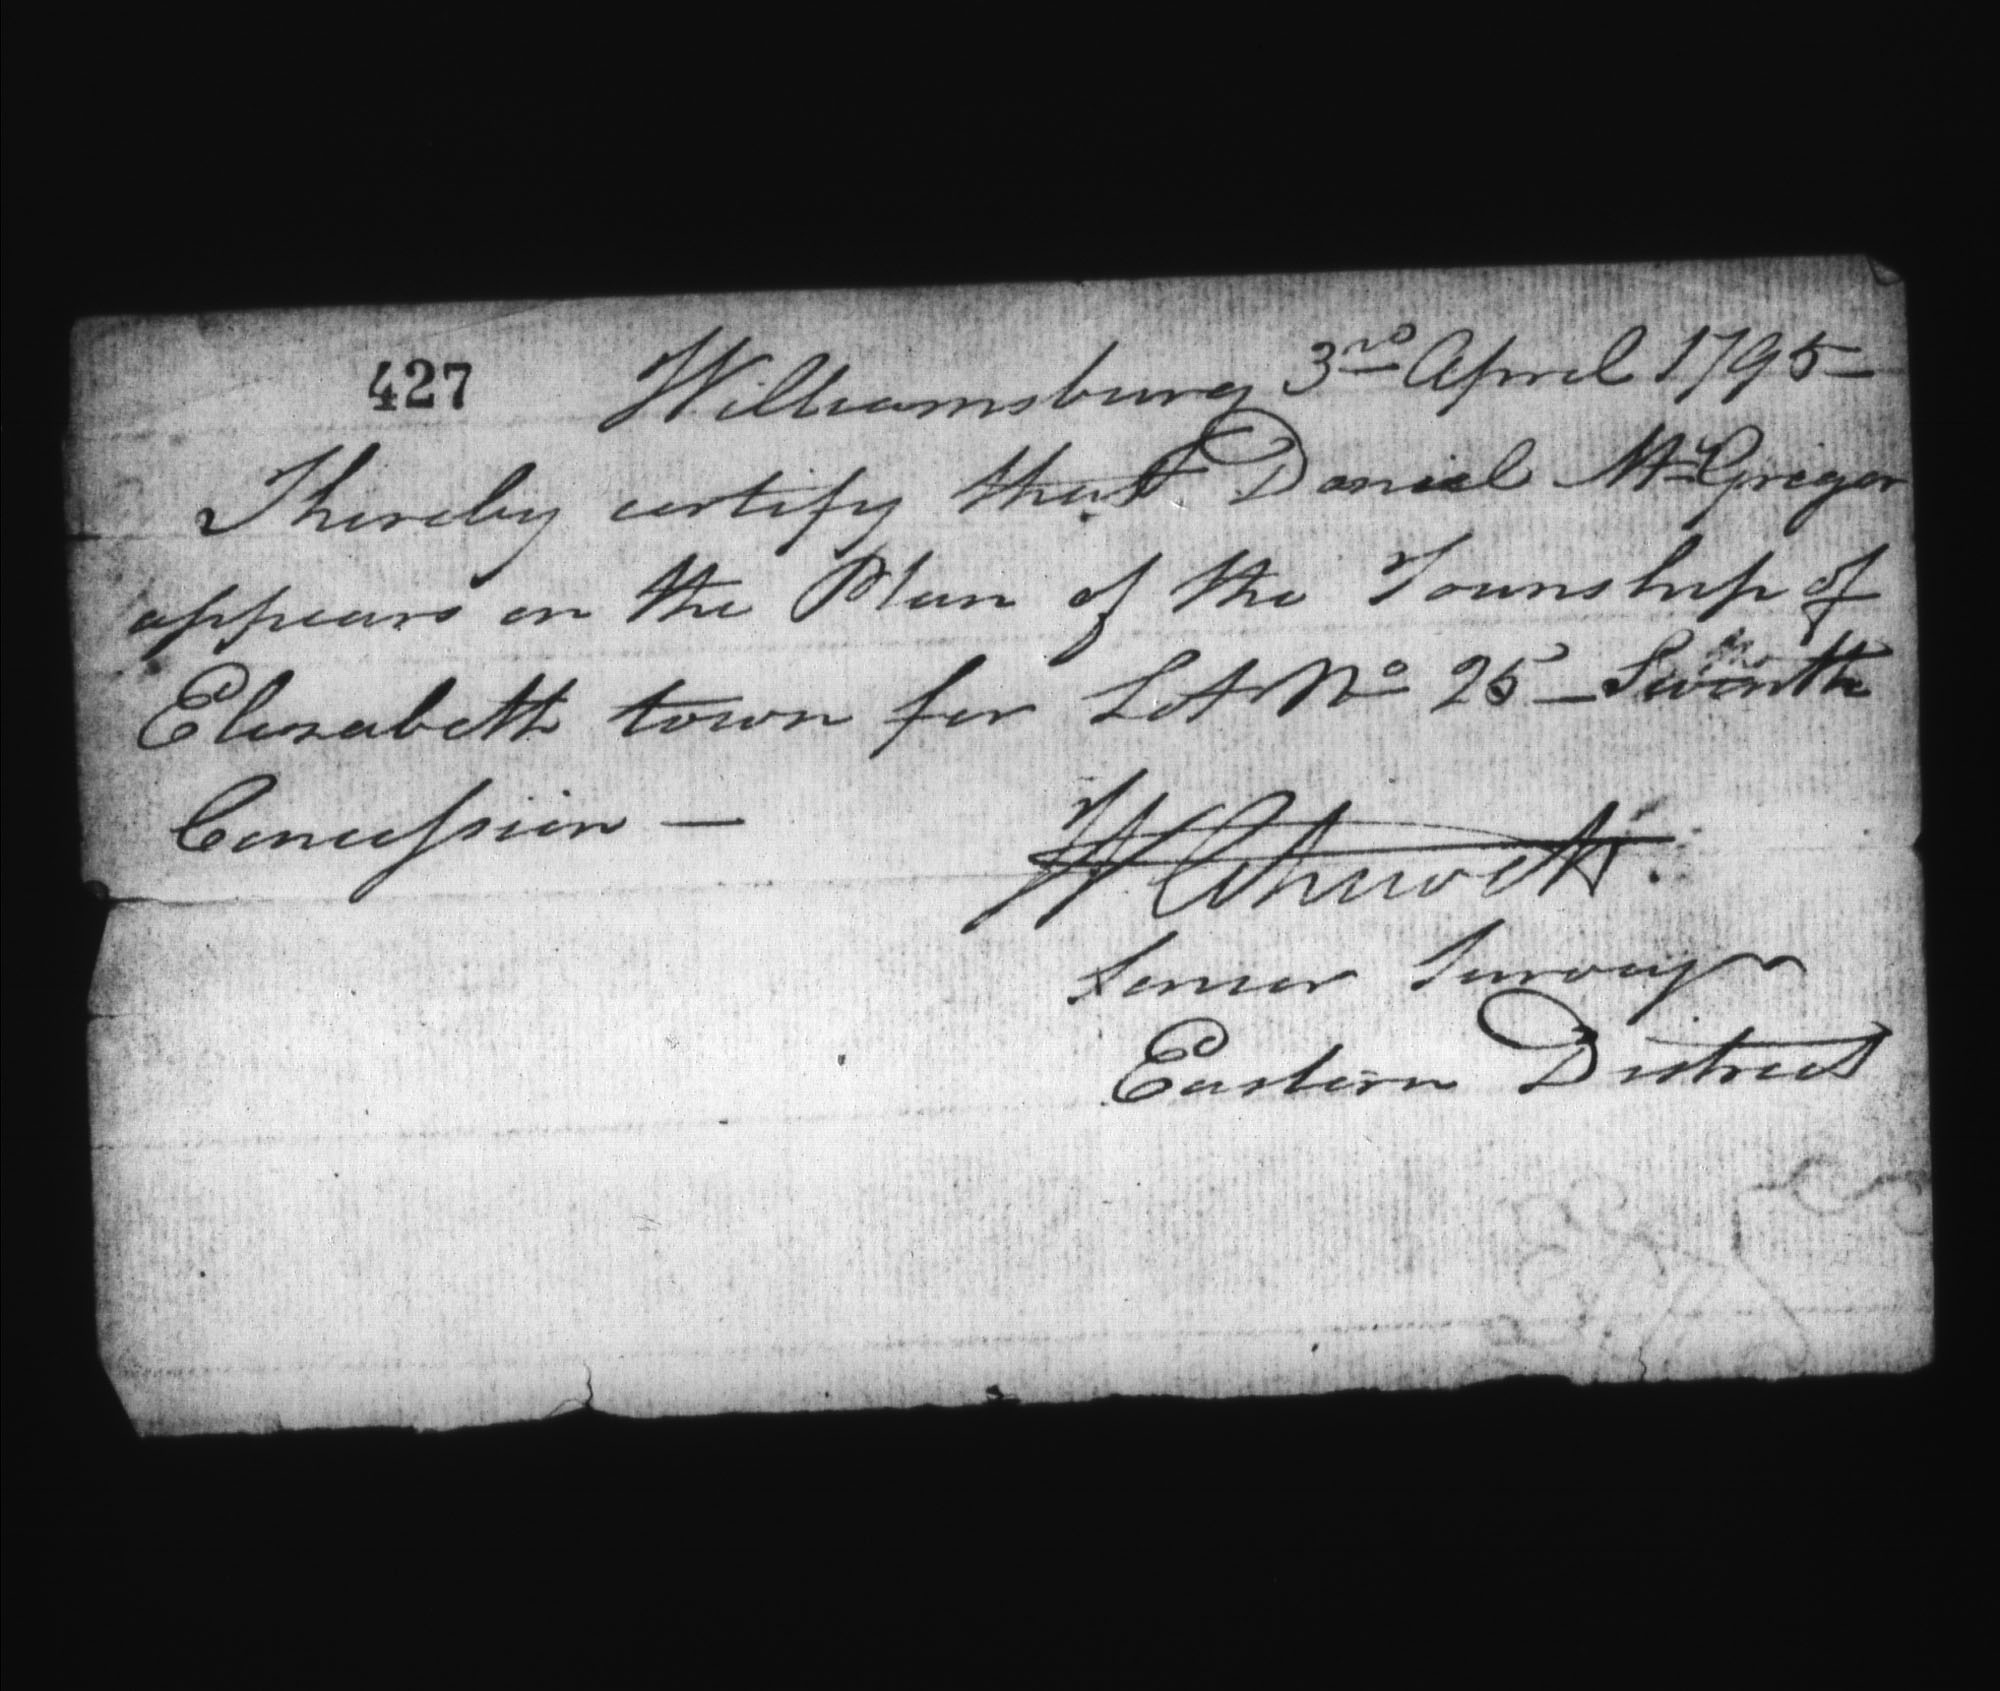 427
Williamsburg 3rd April 1795 —
I hereby certify that Daniel McGrigor
appears on the Plan of the Township of
Elizabeth town for Lot No 25 —
Concession —
Senior Surveyr
Eastern District